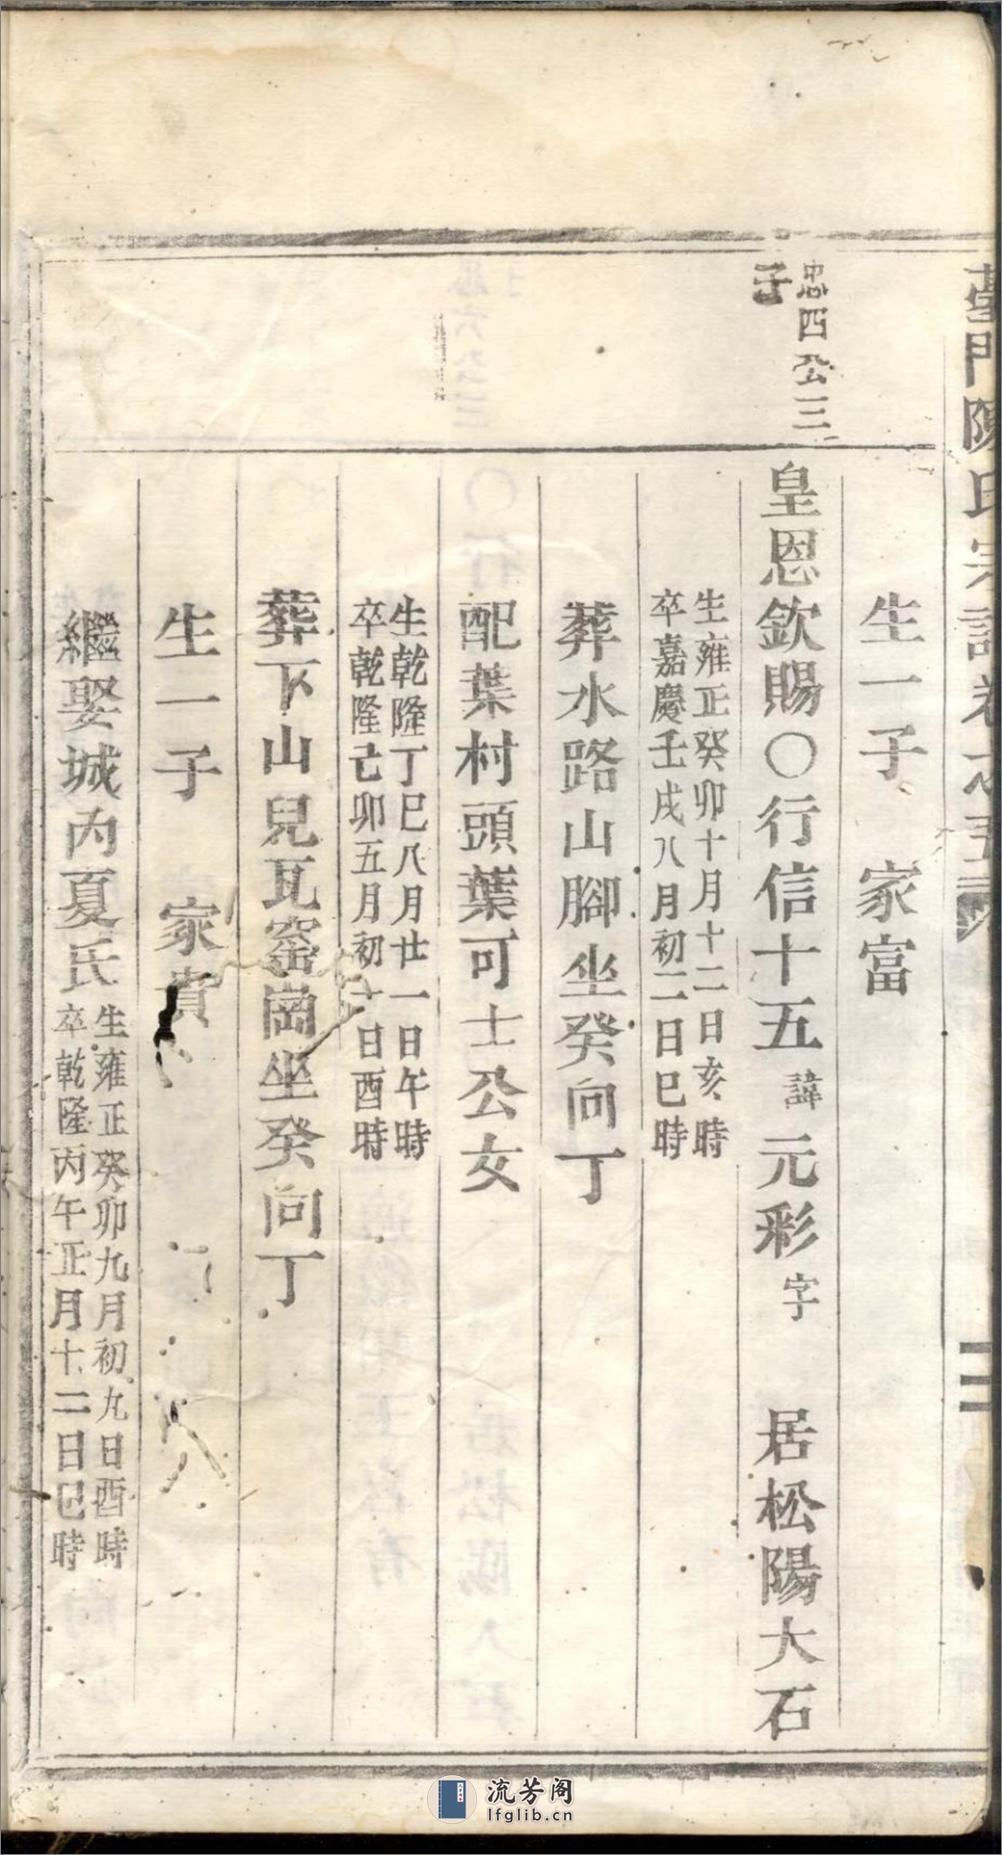 門陳氏宗譜卷之五
生一子 家富
忠四公三
子
皇恩欽賜〇行信十五 諱元彩字 居松陽大石
生雍正癸卯十月十二日亥時
卒嘉慶壬戌八月初二日巳時
葬水路山腳坐癸向丁
配葉村頭葉可士公女
生乾隆丁巳八月廿一日午時
卒乾隆己卯五月初十日酉時
葬下山兒瓦窑崗坐癸向丁
生一子 家貴
繼娶城內夏氏
生雍正癸卯九月初九日酉時
卒乾隆丙午正月十二日巳時
流芳阁
lfglib.cn